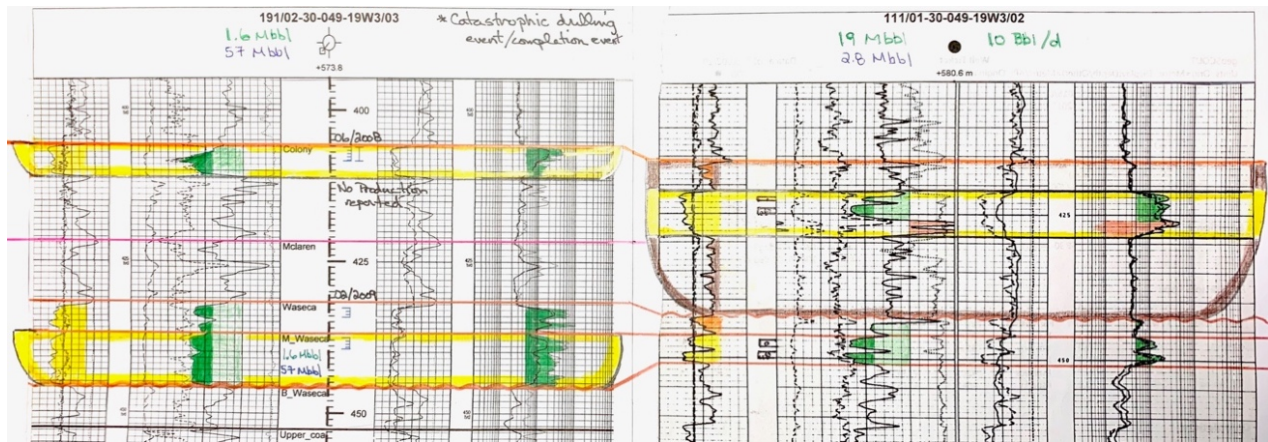 191/02-30-049-19W3/03
1.6 Mbbl
57 Mbbl
* Catastrophic drilling
event/completion event
+573.8
400
06/2008
Colony
No Production
reported
Mclaren
425
02/2009
Waseca
M_Waseca
1.6 Mbbl
57 Mbbl
B_Waseca
450
Upper_coal
111/01-30-049-19W3/02
19 Mbbl
10 Bbl/d
2.8 Mbbl
+580.6 m
425
450